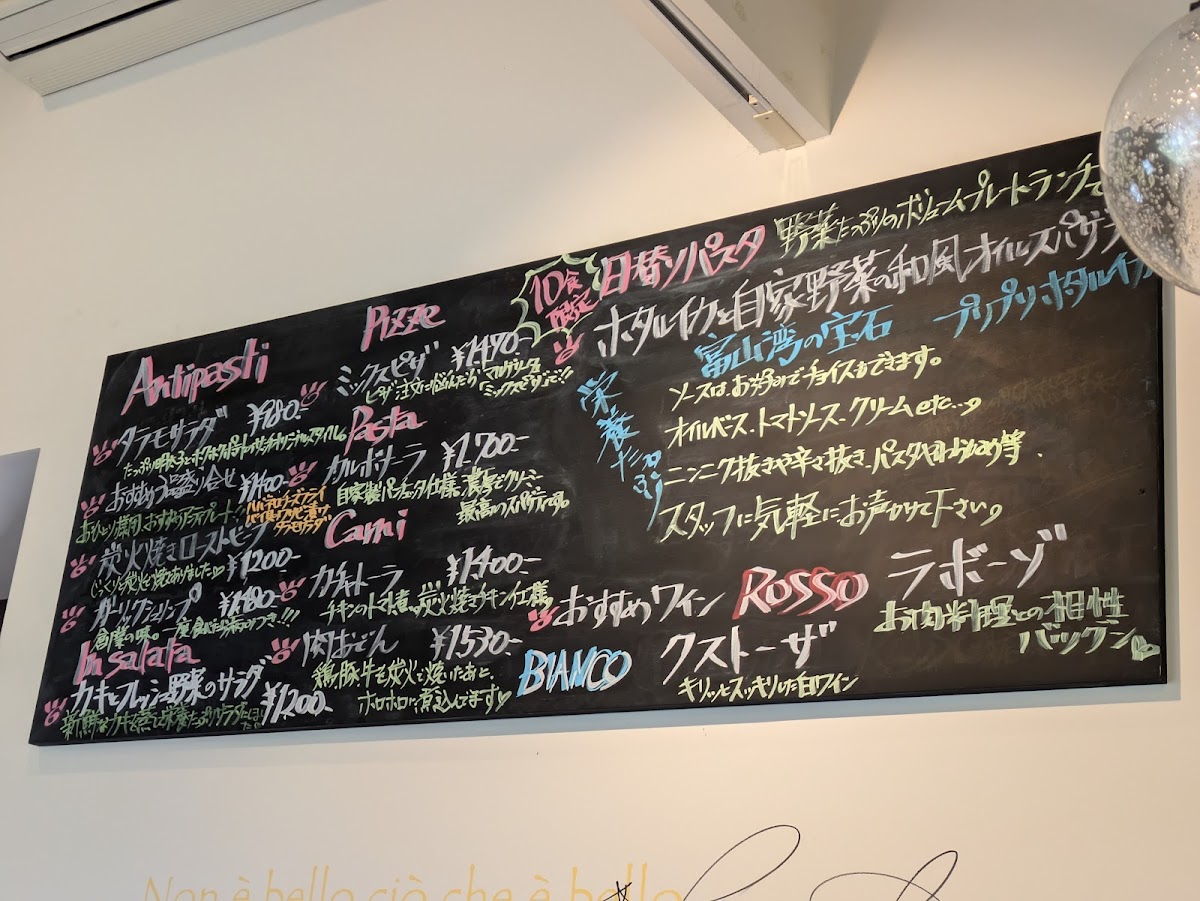 Antipasti
タラモサラダ ¥980-
おすすめ5種盛り合せ ¥1400-
炭火焼きローストビーフ ¥1200-
じっくり炭火で焼きあげました♡
ガーリックシュリンプ ¥1480-
Insalata
カキとフレッシュ野菜のサラダ ¥1200-
Pizze
ミックスピザ ¥1,490-
ピザ注文に悩んだら
ミックスピザで!!
Pasta
カルボナーラ ¥1,700-
自家製パンチェッタ仕様。濃厚でクリーミー
最高のスパゲティです。
Carni
カチャトーラ ¥1,400-
チキンのトマト煮。炭火焼きチキン仕様
肉おでん ¥1530-
鶏、豚、牛を炭火で焼いたあと、
ホロホロに煮込んでます♡
10食限定
日替りパスタ 野菜たっぷりのボリュームプレートランチで
ホタルイカと自家野菜の和風オイルスパゲ
富山湾の宝石 プリプリホタルイカ
栄養たっぷり
ソースは、お好みでチョイスもできます。
オイルベース、トマトソース、クリームetc...♪
ニンニク抜きや辛さ抜き、パスタやわらかめ等
スタッフに気軽にお声かけて下さい♪
おすすめワイン ROSSO ラボーゾ
お肉料理との相性
バツグン♡
BIANCO クストーザ
キリッとスッキリした白ワイン
Non è bello ciò che è bello